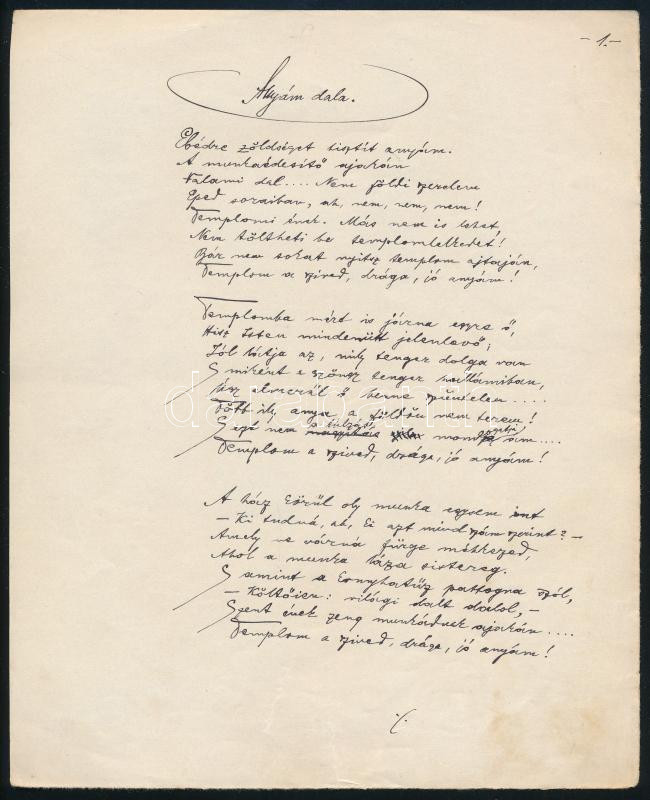 - 1. -
Anyám dala.
Ebédre zöldséget tisztít anyám.
A munkaédesítő ajakán
Valami dal.... Nem földi szerelem
Eped soraiban, ah, nem, nem, nem!
Templomi ének. Más nem is lehet,
Nem töltheti be templomlelkedet!
Bár nem sokat nyitsz templom ajtaján,
Templom a szived, drága, jó anyám!
Templomba mért is járna egyre ő,
Hisz Isten mindenütt jelenlevő;
Jól látja az, mily tenger dolga van
S miként a szöngy tenger hullámiban,
Ugy elmerül ő benne szüntelen.....
Több ily anya a földön nem terem!
S ezt nem a túlzás mondja ám....
Templom a szived, drága, jó anyám!
A ház körül oly munka egyre
– Ki tudná, ah, ki azt mind szám szerint? –
Amely ne várná fürge két kezed,
Ahol a munka láza sistereg.
S amint a konyhatűz pattogva szól,
– Költőien: világi dalt dalol, –
Szent ének zeng munkádnak ajakán....
Templom a szived, drága, jó anyám!
·/.